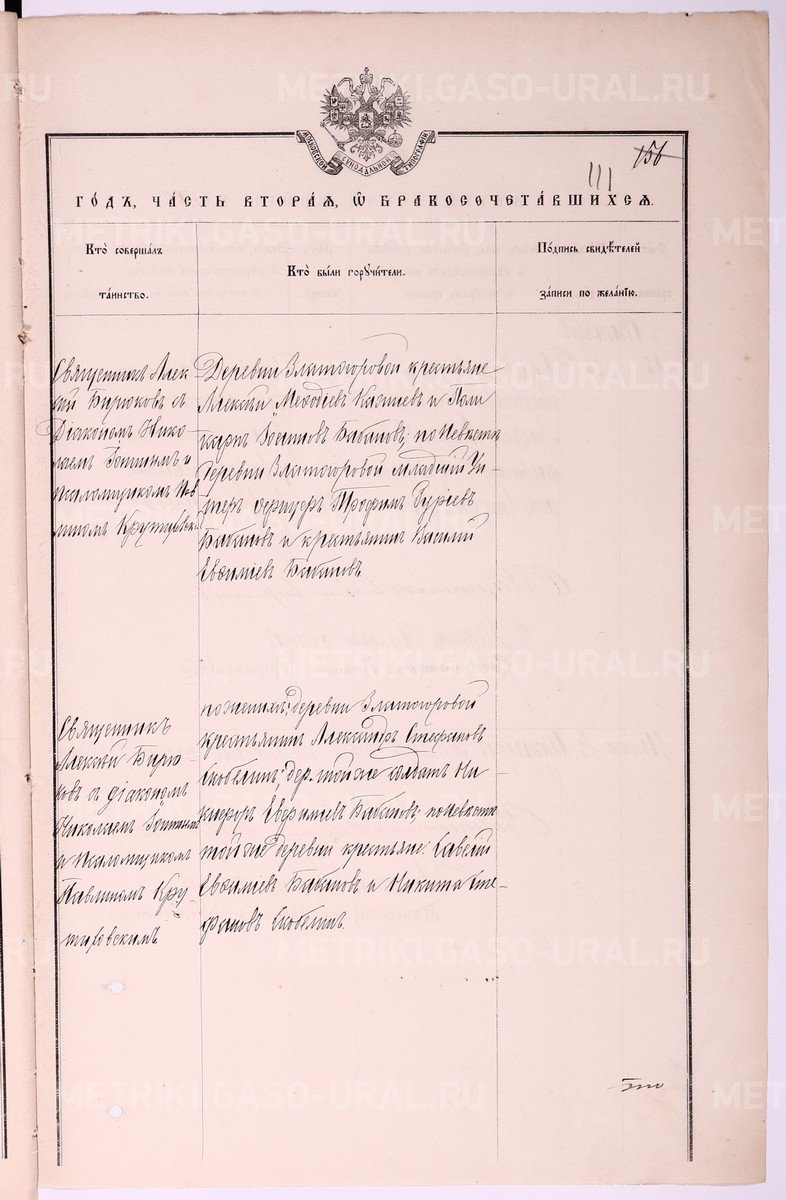 METRIKI.GASO-URAL.RU
МОСКОВСКОЙ СѴНОДАЛЬНОЙ ТИПОГРАФІИ
156
111
ГО́ДЪ, ЧА́СТЬ ВТОРА́Я, Ѡ БРАКОСОЧЕТА́ВШИХСЯ.
Кто̀ совершалъ
таинство.
Кто̀ были поручи́тели.
По́дпись свидѣ́телей
за́писи по жела́нїю.
Священникъ Алек
сій Бирюковъ съ
Діакономъ Нико
лаемъ и
псаломщикомъ Пав
линомъ
Деревни Златогоровой крестьяне
Алексѣй Меѳодіевъ и Поли
карпъ Бабановъ; по невѣстѣ
деревни Златогоровой младшій Ун
теръ офицеръ Трофимъ Гурьевъ
Бабановъ и крестьянинъ Василій
Евѳиміевъ Бабановъ.
Священникъ
Алексѣй Бирю
ковъ съ діакономъ
Николаемъ
и псаломщикомъ
Павлиномъ Кру
тиховскимъ
по женихѣ: деревни Златогоровой
крестьянинъ Александръ Стефановъ
Скобелинъ; дер. той же солдатъ Ни
кифоръ Евфиміевъ Бабановъ; по невѣстѣ
той же деревни крестьяне: Савелій
Евѳиміевъ Бабановъ и Никита Сте-
фановъ Скобелинъ.